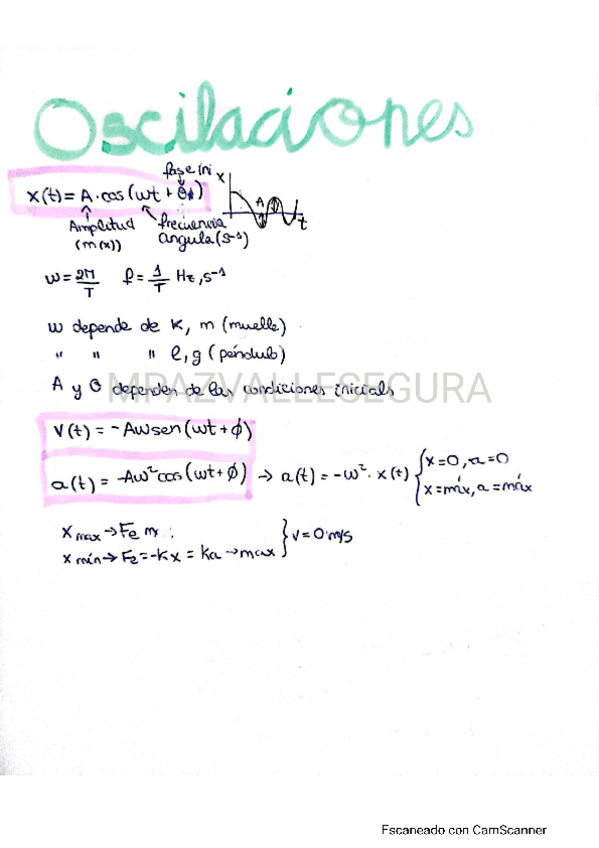 Oscilaciones
fase ini
x(t) = A·cos(ωt + θ)
x
A
t
Amplitud
(m(x))
frecuencia
angula(s⁻¹)
ω = 2π/T f = 1/T Hz, s⁻¹
ω depende de K, m (muelle)
" " " l, g (péndulo)
A y θ dependen de las condiciones inicials
MPAZVALLESEGURA
V(t) = -Aωsen(ωt + ϕ)
a(t) = -Aω²cos(ωt + ϕ) → a(t) = -ω² · x(t) { x=0, a=0
x=máx, a=máx
x max → Fe
x mín → Fe = -Kx = Ka → max } v = 0 m/s
Escaneado con CamScanner